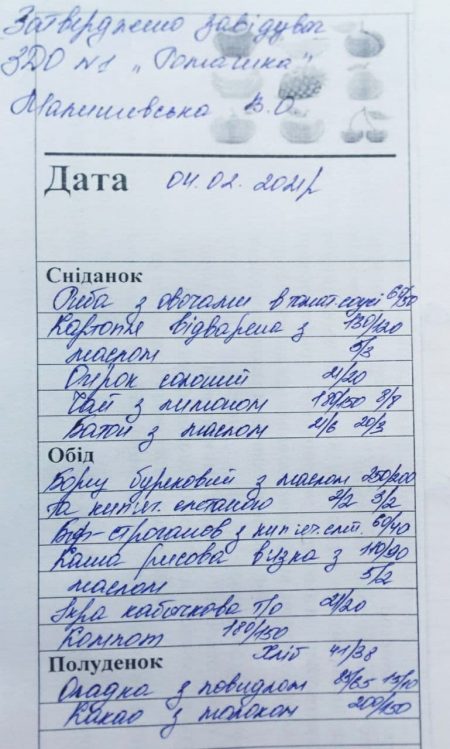 Затверджено завідувач
ЗДО №1 „Ромашка"
Малишевська В.О
Дата 04.02. 2021р
Сніданок
Риба з овочами в томат. соусі
Картопля відварена з 130/120
маслом 5/3
Огірок солоний 21/20
Чай з лимоном 180/150 8/8
Батон з маслом 20/3
Обід
Борщ буряковий з маслом 250/200
та кип'ят. сметаною 2/2 3/2
Беф-строганов з кип'ят. смт. 60/40
Каша рисова в'язка з 110/90
маслом 5/2
Ікра кабачкова п/о 21/20
Компот 180/150
Хліб 41/38
Полуденок
Оладка з повидлом 85/65 15/10
Какао з молоком 200/150